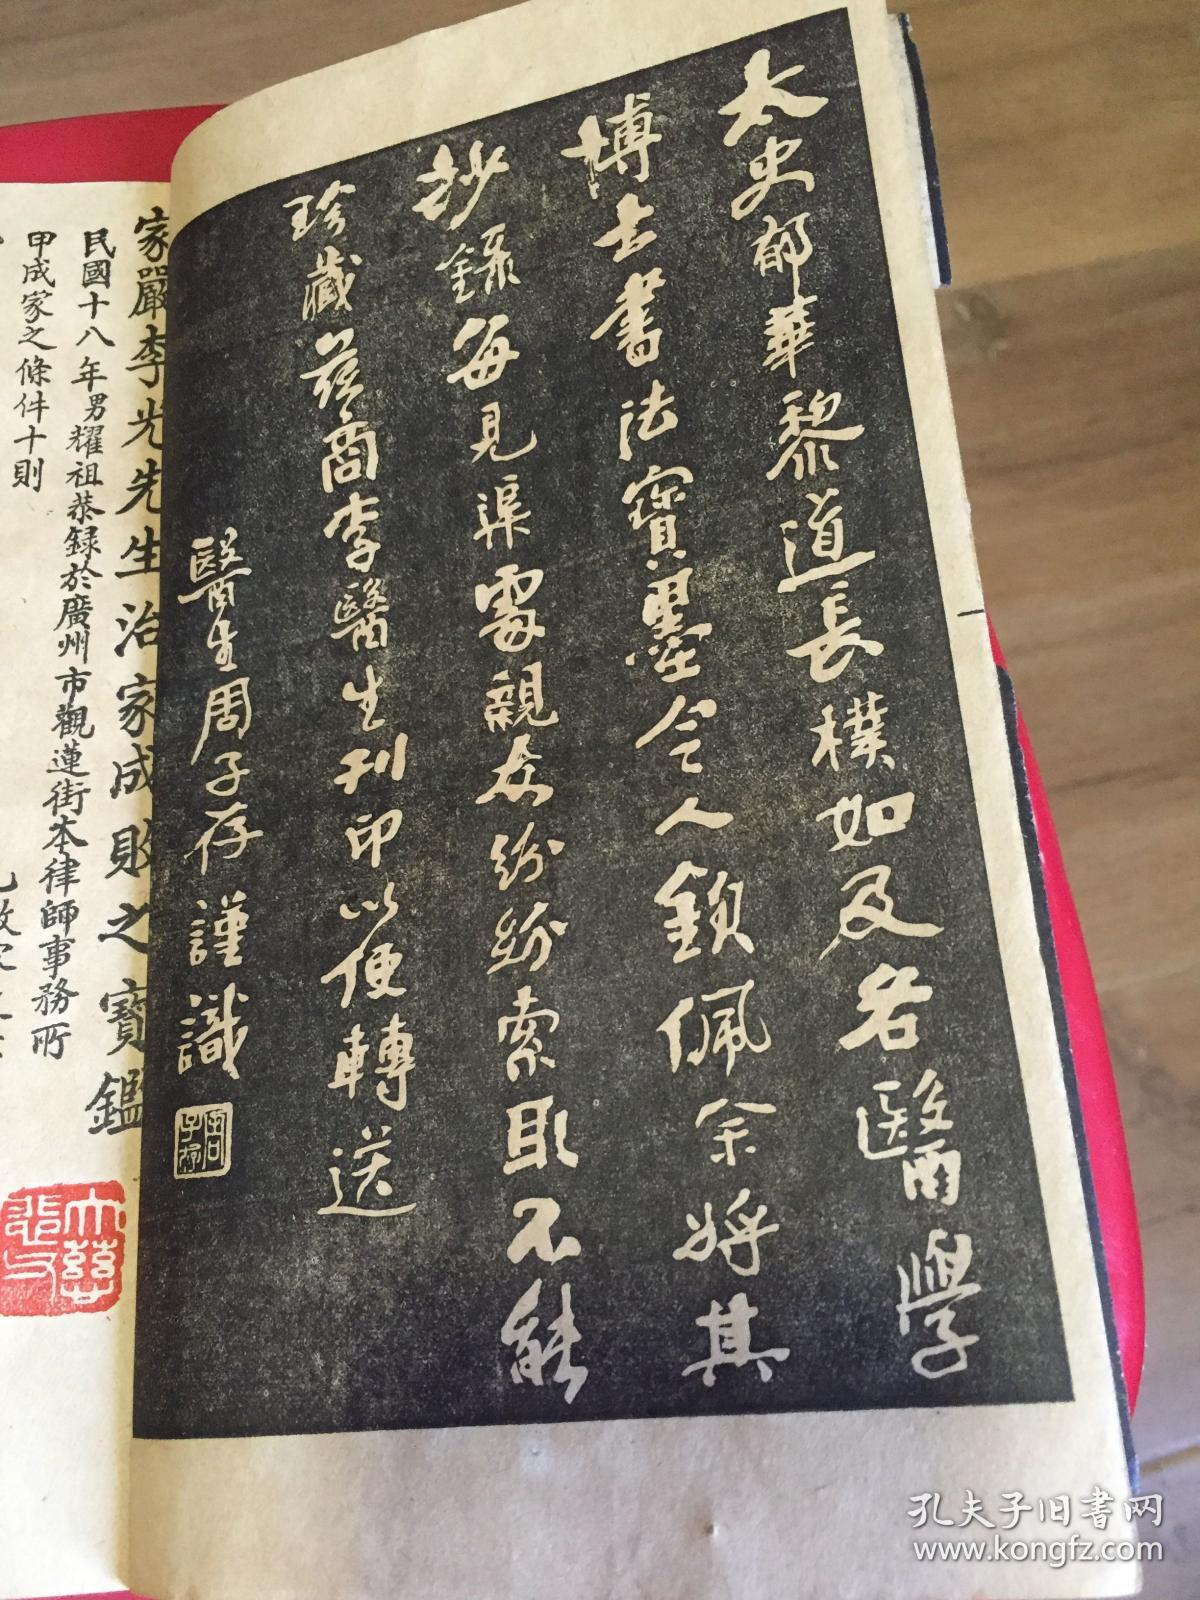 太史郁華黎道長樸如及名醫學
博士書法寶墨令人欽佩余將其
抄錄每見渠處親友紛紛索取不能
珍藏茲商李醫生刊印以便轉送
醫生周子存謹識
周子存
家嚴李光先生治家成則之寶鑑
民國十八年男耀祖恭録於廣州市觀蓮街本律師事務所
甲成家之條件十則
孔夫子旧书网
www.kongfz.com